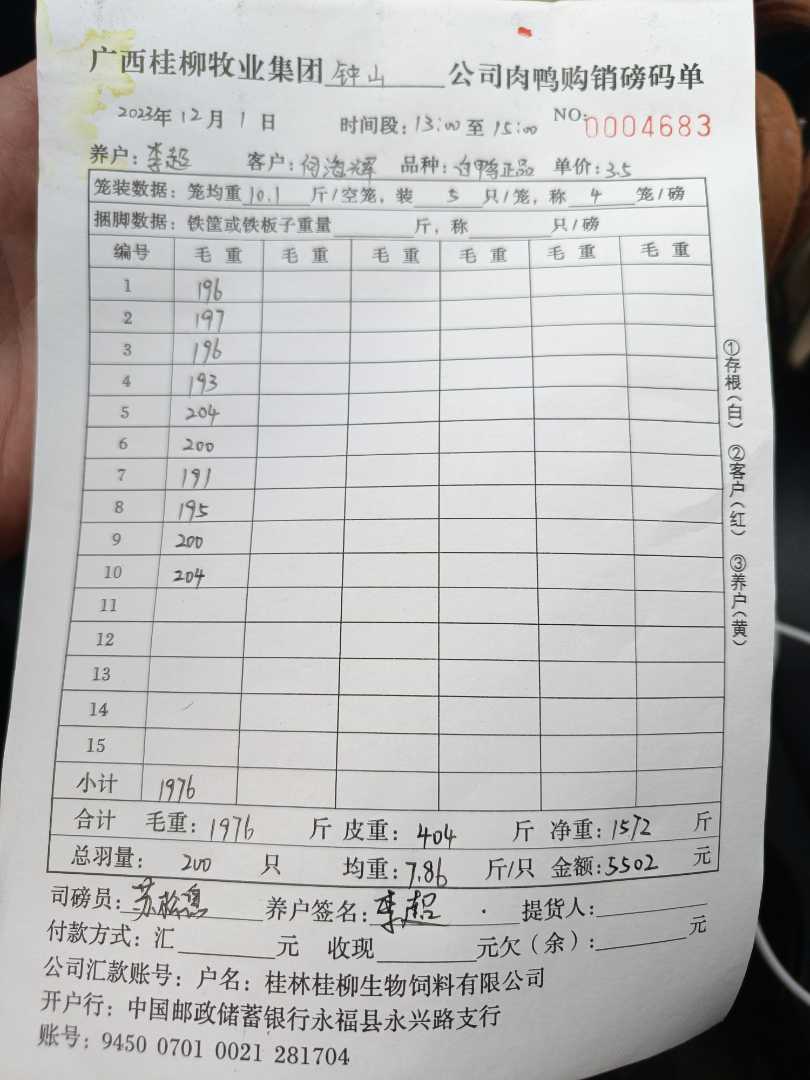 广西桂柳牧业集团钟山公司肉鸭购销磅码单
2023年12月1日 时间段:13:00至15:00 NO:0004683
养户:李超 客户:何海辉 品种:白鸭正品 单价:3.5
笼装数据:笼均重10.1斤/空笼,装5只/笼,称4笼/磅
捆脚数据:铁筐或铁板子重量____斤,称____只/磅
编号 毛重 毛重 毛重 毛重 毛重 毛重
1 196
2 197
3 196
4 193
5 204
6 200
7 191
8 195
9 200
10 204
11
12
13
14
15
小计 1976
合计 毛重:1976斤 皮重:404斤 净重:1572斤
总羽量:200只 均重:7.86斤/只 金额:5502元
司磅员:苏松 养户签名:李超 提货人:____
付款方式:汇____元 收现____元欠(余):____元
公司汇款账号:户名:桂林桂柳生物饲料有限公司
开户行:中国邮政储蓄银行永福县永兴路支行
账号:9450 0701 0021 281704
①存根(白) ②客户(红) ③养户(黄)